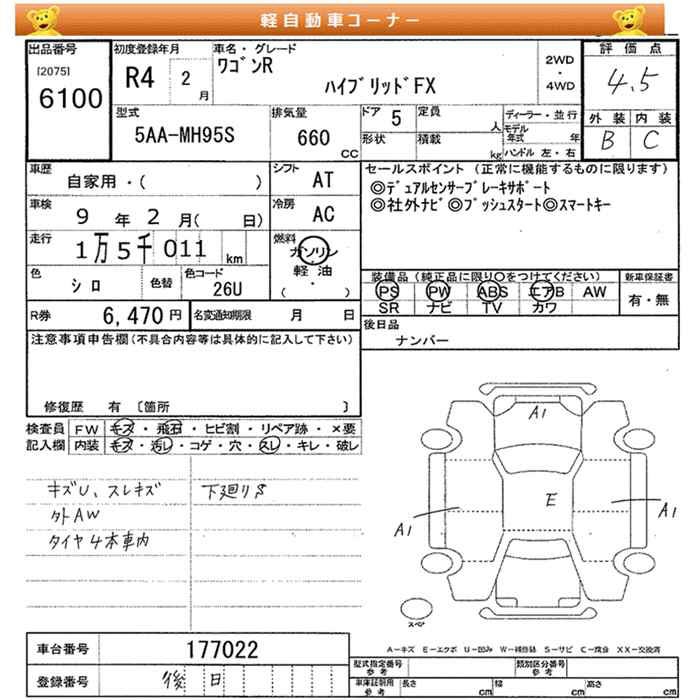 軽自動車コーナー
出品番号 初度登録年月 車名・グレード 評価点
[2075] R4 2月 ワゴンR 2WD・4WD 4.5
6100 ハイブリッドFX
外装 内装
B C
型式 排気量 ドア 5 定員 人 ディーラー・並行
5AA-MH95S 660 CC 形状 積載 kg モデル年式 年
ハンドル 左・右
車歴 自家用・( ) シフト AT
セールスポイント (正常に機能するものに限ります)
◎デュアルセンサーブレーキサポート
◎社外ナビ◎プッシュスタート◎スマートキー
車検 9年 2月( 日) 冷房 AC
走行 1万5千011km 燃料 ガソリン
軽油
・
( )
色 シロ 色替 色コード 26U
装備品 (純正品に限り○をつけてください) 新車保証書
PS PW ABS エアB AW 有・無
SR ナビ TV カワ
R券 6,470円 名変通知期限 月 日
後日品 ナンバー
注意事項申告欄(不具合内容等は具体的に記入して下さい)
修復歴 有 〔箇所 〕
検査員 FW キズ・飛石・ヒビ割・リペア跡・×要
記入欄 内装 キズ・汚レ・コゲ・穴・スレ・キレ・破レ
キズU、スレキズ 下廻りS
外AW
タイヤ4本車内
A1
E
A1
A1
スペア
A-キズ E-エクボ U-凹み W-補修跡 S-サビ C-腐食 XX-交換済
車台番号 177022
登録番号 後日
型式指定番号 参考 類別区分番号 参考
車庫証明用 参考 長さ cm 幅 cm 高さ cm